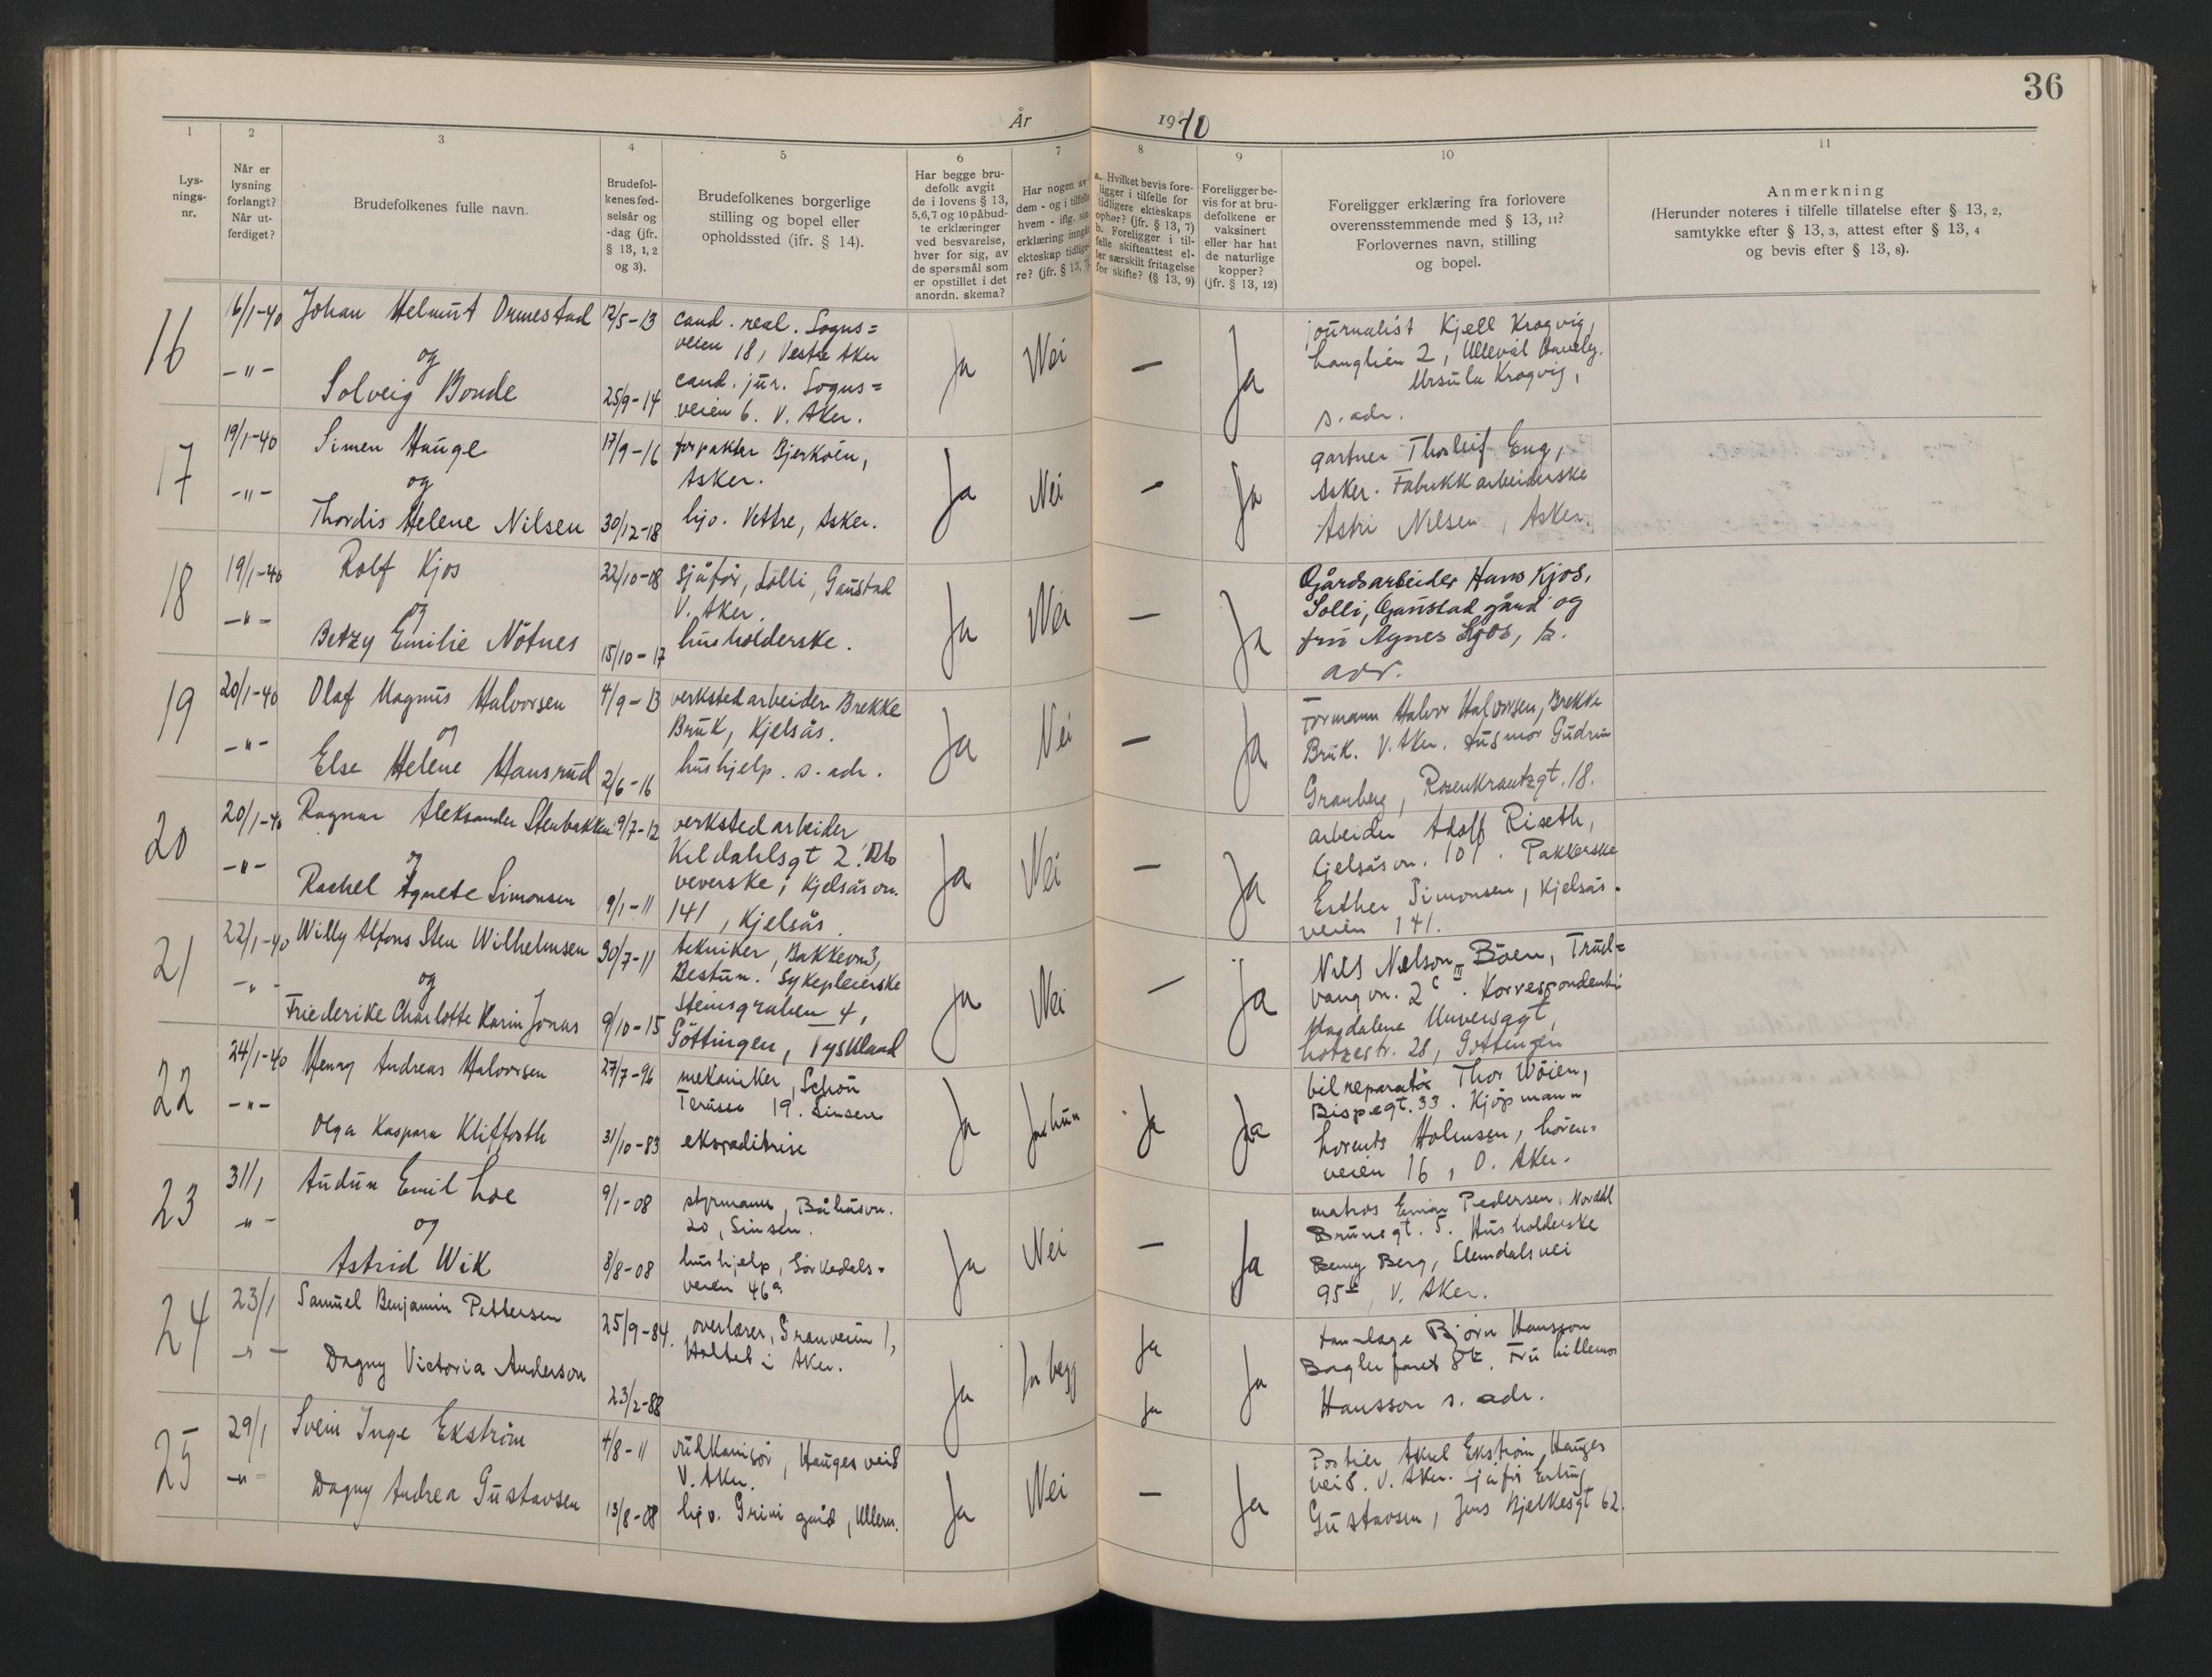 36
År 1940
1 2 3 4 5 6 7 8 9 10 11
Lys-
nings-
nr.
Når er
lysning
forlangt?
Når ut-
ferdiget?
Brudefolkenes fulle navn.
Brudefol-
kenes fød-
selsår og
-dag (jfr.
§ 13, 1, 2
og 3).
Brudefolkenes borgerlige
stilling og bopel eller
opholdssted (jfr. § 14).
Har begge bru-
defolk avgit
de i lovens § 13,
5,6,7 og 10 påbud-
te erklæringer
ved besvarelse,
hver for sig, av
de spørsmål som
er opstillet i det
anordn. skema?
Har nogen av
dem - og i tilfelle
hvem - iflg. sin
erklæring inngått
ekteskap tidlige-
re? (jfr. § 13, 7).
a. Hvilket bevis fore-
ligger i tilfelle for
tidligere ekteskaps
ophør? (jfr. § 13, 7)
b. Foreligger i til-
felle skifteattest el-
ler særskilt fritagelse
for skifte? (§ 13, 9)
Foreligger be-
vis for at bru-
defolkene er
vaksinert
eller har hat
de naturlige
kopper?
(jfr. § 13, 12)
Foreligger erklæring fra forlovere
overensstemmende med § 13, 11?
Forlovernes navn, stilling
og bopel.
Anmerkning
(Herunder noteres i tilfelle tillatelse efter § 13, 2,
samtykke efter § 13, 3, attest efter § 13, 4
og bevis efter § 13, 8).
16
16/1-40
-"-
Johan Helmut Ormestad
og
Solveig Bonde
12/5-13
25/9-14
cand. real. Sogns=
veien 18, Vestre Aker
cand. jur. Sogns=
veien 6. V. Aker.
Ja
Nei
—
Ja
journalist Kjell Krogvig,
Langlien 2, Ullevål Haveby.
Ursula Krogvig,
s. adr.
17
19/1-40
-"-
Simen Hauge
og
Thordis Helene Nilsen
17/9-16
30/12-18
forpakter Bjerkøen,
Asker.
hjv. Vettre, Asker.
Ja
Nei
—
Ja
gartner Thorleif Eng,
Asker. Fabrikkarbeiderske
Astri Nilsen, Asker.
18
19/1-40
-"-
Rolf Kjos
og
Betzy Emilie Nötnes
22/10-18
15/10-17
Sjåför, Solli, Gaustad
V. Aker.
husholderske.
Ja
Nei
—
Ja
Gårdsarbeider Hans Kjos,
Solli, Gaustad gård og
fru Agnes Kjos, s.
adr.
19
20/1-40
-"-
Olaf Magnus Halvorsen
og
Else Helene Hansrud
4/9-13
2/6-16
verkstedarbeider Brekke
Bruk, Kjelsås.
hushjelp. s. adr.
Ja
Nei
—
Ja
Formann Halvor Halvorsen, Brekke
Bruk. V. Aker. Husmor Gudrun
Granberg, Rosenkrantzgt. 18.
20
20/1-40
-"-
Ragnar Aleksander Stenbakken
og
Rachel Agnete Simonsen
9/7-12
9/1-11
verkstedarbeider
Keldahlsgt 2.
veverske, Kjelsåsvn.
141, Kjelsås.
Ja
Nei
—
Ja
arbeider Adolf Riseth,
Kjelsåsvn. 101. Pakkerske
Esther Simonsen, Kjelsås-
veien 141.
21
22/1-40
-"-
Willy Alfons Sten Wilhelmsen
og
Friederike Charlotte Karin Jonas
30/7-11
9/10-15
tekniker, Bakkevn 3,
Bestun. Sykepleierske
Steinsgraben 4,
Göttingen, Tyskland
Ja
Nei
—
Ja
Nils Nelson Böen, Trud=
vangvn. 2c III. Korrespondentin
Magdalene Unversagt,
Lotzestr. 28, Göttingen
22
24/1-40
-"-
Henry Andreas Halvorsen
Olga Kaspara Kliffoth
27/7-96
31/10-83
mekaniker, Schou
Terasse 19. Sinsen
ekspeditrise
Ja
Ja hun
Ja
Ja
bilreparatör Thor Wöien,
Bispegt. 33. Kjöpmann
Lorents Holmsen, Lören-
veien 16, Ö. Aker.
23
31/1
-"-
Audun Emil Loe
og
Astrid Wik
9/1-08
8/8-08
styrmann, Båhusvn.
20, Sinsen.
hushjelp, Sörkedals-
veien 46a
Ja
Nei
—
Ja
matros Einar Pedersen, Nordal
Brunsgt. 5. Husholderske
Benny Berg, Slemdalsvei
95 V. Aker.
24
23/1
-"-
Samuel Benjamin Pettersen
Dagny Victoria Anderson
25/9-84.
23/2-88
overlærer, Granveien 1,
Holtet i Aker.
Ja
Ja begg
Ja
Ja
Ja
tannlæge Björn Hansson
Baglerfaret 8. Fru Lillemor
Hansson s. adr.
25
29/1
-"-
Svein Inge Ekström
Dagny Andrea Gustavsen
4/8-11
13/8-08
vulkanisör, Hauges vei 8
V. Aker.
hjv. Grini gård, Ullern.
Ja
Nei
—
Ja
Portier Aksel Ekström, Hauges
vei 8. V. Aker. Sjåför Erling
Gustavsen, Jens Bjelkesgt 62.